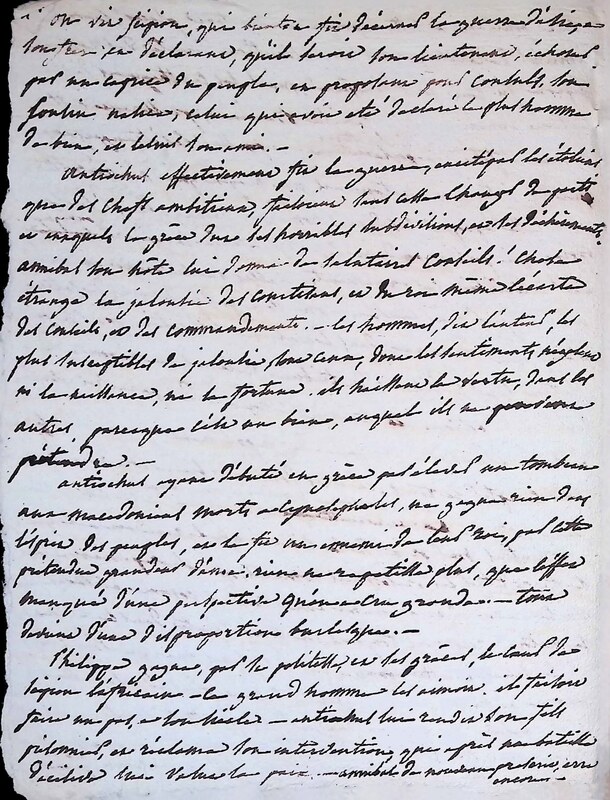 On vit Scipion, qui bientôt fit décerner la guerre d'Asie à
son frère en déclarant, qu'il seroit son lieutenant, échouer
par un caprice du peuple, en proposant pour Consul, son
Cousin nasica, celui qui avoit été déclaré le plus homme
de bien, et Lelius son ami. —
Antiochus effectivement fit la guerre, excité par les étoliens
que des chefs ambitieux, faisoient sans cesse changer de parti
et auxquels la grèce dut ses horribles subdivisions, et ses déchirements.
annibal son hôte lui donna de salutaires Conseils! Chose
étrange la jalousie des Courtisans, et du roi même l'écarta
des Conseils, et des commandements. — les hommes, dit l'auteur, les
plus susceptibles de jalousie sont ceux, dont les sentiments n'égalent
ni la naissance, ni la fortune. ils haïssent la vertu, dans les
autres, parceque c'est un bien, auquel ils ne peuvent
prétendre. —
antiochus ayant débuté en grèce par élever un tombeau
aux macédoniens morts a Cynoscéphales, ne gagna rien dans
l'esprit des peuples, et se fit un ennemi de leur roi, par cette
prétendue grandeur d'âme. rien ne rapetisse plus, que l'effet
manqué d'une perspective qu'on a cru grande. — tout
devient d'une disproportion burlesque. —
Philippe gagna, par sa politesse, et ses grâces, le cœur de
Scipion l'africain — Ce grand homme les aimoit. il faisoit
faire un pas, a son siècle — antiochus lui rendit son fils
prisonnier, et réclama son intervention, qui après une bataille
décisive lui valut la paix. — annibal de nouveau proscrit, erre
encore. —